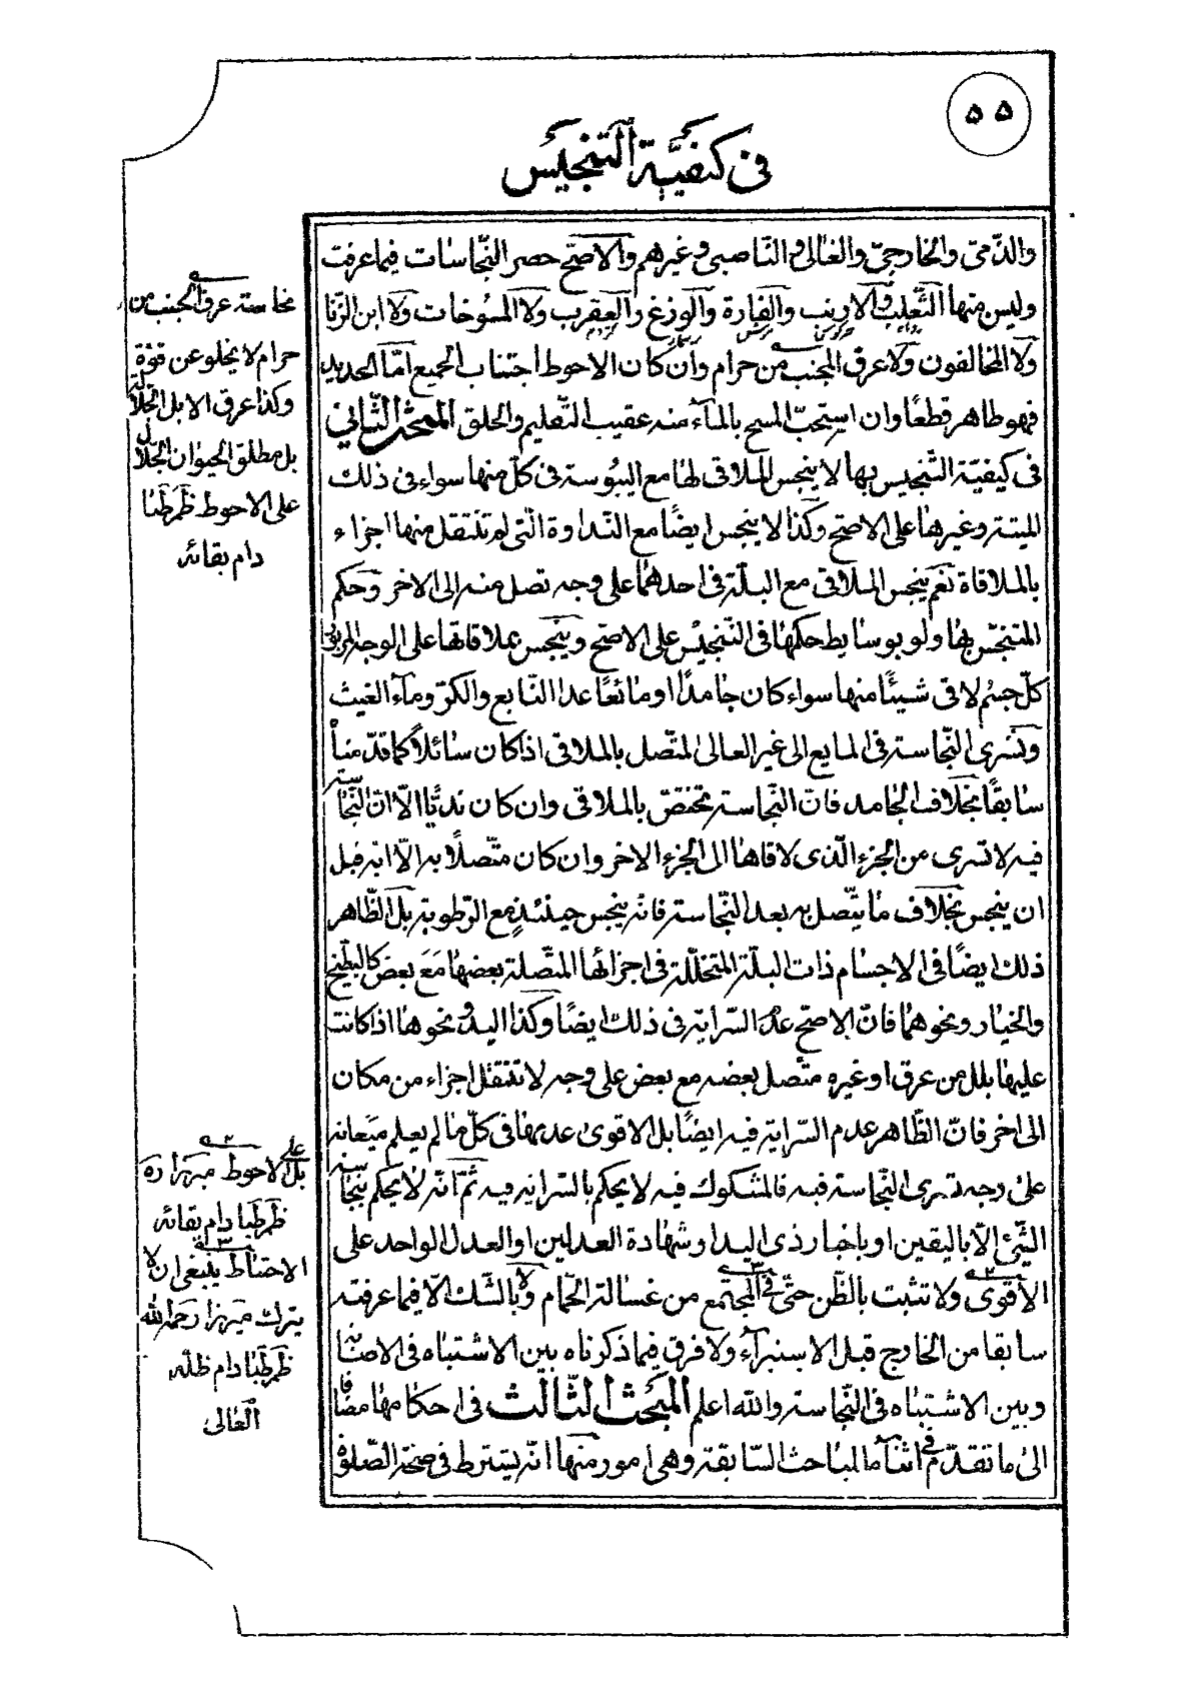 ۵۵
فی کیفیة التنجیس
والذّمیّ والخارجیّ والغالی والنّاصبی وغیرهم والاصحّ حصر النّجاسات فیما عرفت
ولیس منها الثّعلب والارنب والفارة والوزغ والعقرب ولا المسوخات ولا ابن الزّنا
ولا المخالفون ولا عرق الجنب من حرام وان کان الاحوط اجتناب الجمیع امّا الحدید
فهو طاهر قطعًا وان استحبّ المسح بالمآء منه عقیب التّقلیم والحلق المبحث الثّانی
فی کیفیّة التّنجیس بها لا ینجس الملاقی لها مع الیبوسة فی کلّ منها سواء فی ذلک
المیتة وغیرها علی الاصحّ وکذا لا ینجس ایضًا مع النّداوة الّتی لم تنتقل منها اجزاء
بالملاقاة نعم ینجس الملاقی مع البلّة فی احدهما علی وجه تصل منه الی الاخر وحکم
المتنجّس بها ولو بوسایط حکمها فی التّنجیس علی الاصحّ وینجس بملاقاتها علی الوجه المزبور
کلّ جسم لاقی شیئًا منها سواء کان جامدًا او مائعًا عدا النّابع والکرّ ومآء الغیث
وتسری النّجاسة فی المایع الی غیر العالی المتّصل بالملاقی اذا کان سائلاً کما قدّمناه
سابقًا بخلاف الجامد فانّ النّجاسة تختصّ بالملاقی وان کان ندیًّا الّا انّ النّجاسة
فیه لا تسری من الجزء الّذی لاقاها الی الجزء الاخر وان کان متّصلاً به الّا انّه قبل
ان ینجس بخلاف ما یتّصل به بعد النّجاسة فانّه ینجس حینئذٍ مع الرّطوبة بل الظّاهر
ذلک ایضًا فی الاجسام ذات البلّة المتخلّلة فی اجزائها المتّصلة بعضها مع بعض کالبطّیخ
والخیار ونحوهما فانّ الاصحّ عدم السّرایة فی ذلک ایضًا وکذا الید ونحوها اذا کانت
علیها بلل من عرق او غیره متّصل بعضه مع بعض علی وجه لا تنتقل اجزاء من مکان
الی اخر فانّ الظّاهر عدم السّرایة فیه ایضًا بل الاقوی عدمها فی کلّ ما لم یعلم میعانه
علی وجه تسری النّجاسة فیه فالمشکوک فیه لا یحکم بالسّرایة فیه ثمّ انّه لا یحکم بنجاسة
الشّیئ الّا بالیقین او باخبار ذی الید او شهادة العدلین او العدل الواحد علی
الأقوی ولا تثبت بالظّن حتّی فی المجتمع من غسالة الحمّام ولا بالشّک الّا فیما عرفته
سابقا من الخارج قبل الاستبرآء ولا فرق فیما ذکرناه بین الاشتباه فی الاصابة
وبین الاشتباه فی النّجاسة والله اعلم المبحث الثّالث فی احکامها مضافا
الی ما تقدّم فی اثنآء المباحث السّابقة وهی امور منها انّه یشترط فی صحّة الصّلوة
نجاسة عرق الجنب من
حرام لا یخلو عن قوّة
وکذا عرق الابل الجلّالة
بل مطلق الحیوان الجلّال
علی الاحوط ظم طبا
دام بقائه
۲
بل علی الاحوط میرزا ره
ظم طبا دام بقائه
۳
الاحتیاط ینبغی ان لا
یترک میرزا رحمه الله
ظم طبا دام ظلّه
العالی